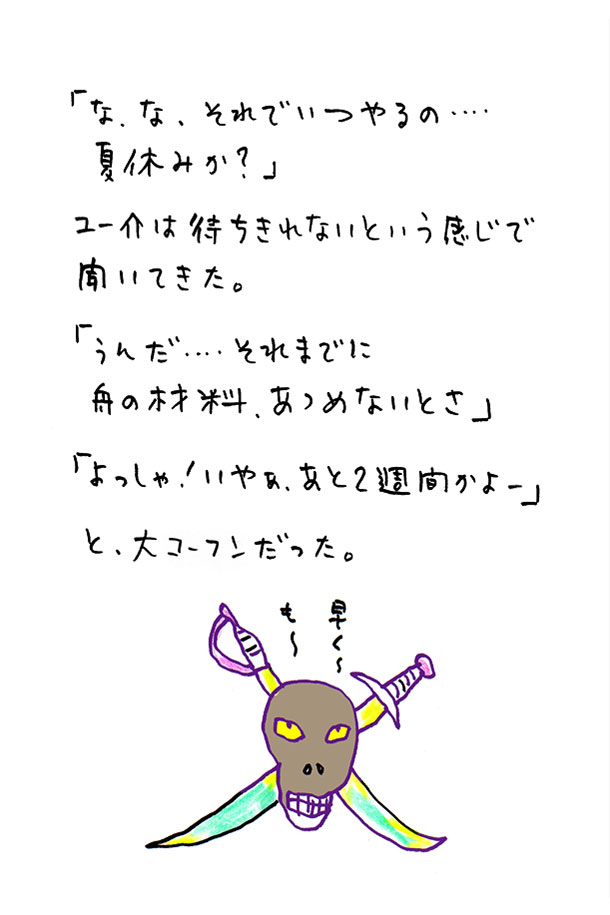 「な、な、それでいつやるの‥‥
夏休みか？」
ユー介は待ちきれないという感じで
聞いてきた。
「うんだ‥‥それまでに
舟の材料、あつめないとさ」
「よっしゃ！いやぁ、あと2週間かよー」
と、大コーフンだった。
早く〜
も〜